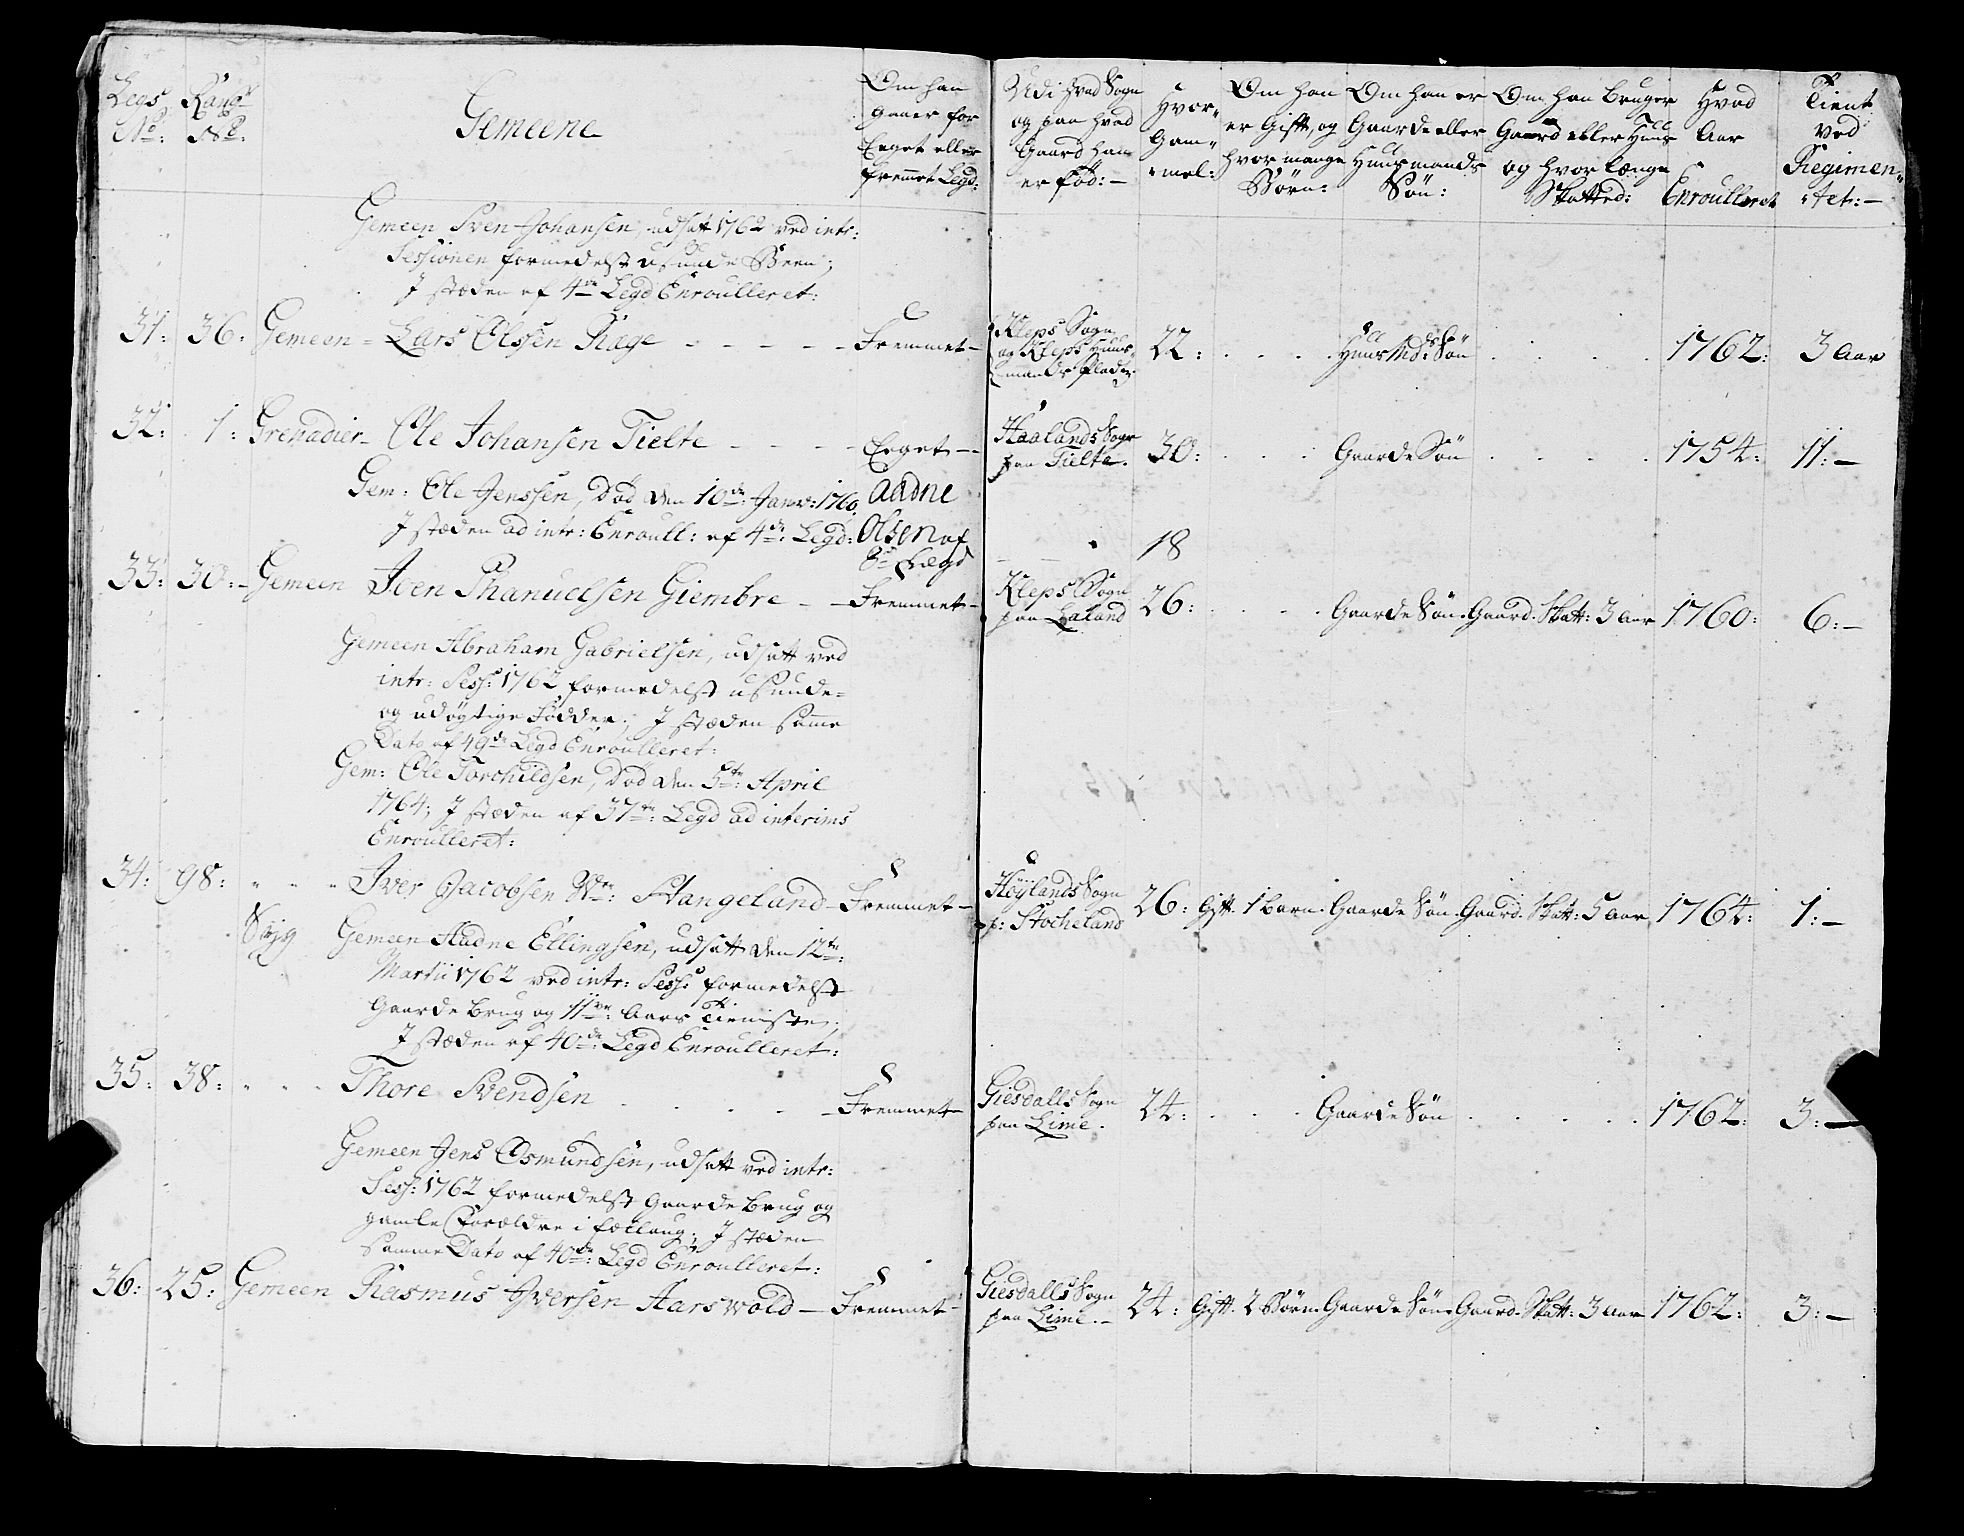 Legs No: Rang No:
Gemeene
Om han gaaer for Eeget eller fremmet Legd:
Udi hvad Sogn og paa hvad Gaard han er fød:
Hvor Gammel:
Om han er Gift, og hvor mange Børn:
Om han er Gaarde eller Huusmands Søn:
Om han bruger Gaard eller Huus og hvor længe Skatted:
Hvad Aar Enroulleret
Tient ved Regimentet:
Gemeen Sven Johansen, udsatt 1762 ved intr:
Sessionen formedelst usunde Been;
J stæden af 4de Legd Enroulleret:
31: 36: Gemeen Lars Olssen Ræge - - - - - Fremmet - Kleps Sogn og Kleps Huusmands Pladz 22: Huus Md: Søn 1762: 3 Aar
32: 1: Grenadier Ole Johansen Tielte - - - - Eeget - Haalands Sogn paa Tielte. 30: Gaarde Søn 1754: 11: -
Gem: Ole Jenssen, Død den 10de Janv: 1760. Aadne
J stæden ad intr: Enroull: af 4de Legd: Olsen af
8de Lægd 18
33: 30: - Gemeen Iven Phanuelsen Giembre - - Fremmet - Kleps Sogn paa Laland 26: Gaarde Søn. Gaard. Skatt: 3 Aar 1760: 6: -
Gemeen Abraham Gabrielsen, udsatt ved
intr: Sess: 1762 formedelst usunde
og udögtige Fødder; J stæden samme
Dato af 49de Legd Enroulleret:
Gem: Ole Torchildsen, Død den 5te April
1764; J stæden af 37te Legd ad interims
Enroulleret:
34: 98: " " " Iver Jacobsen Stangeland - Fremmet - Höylands Sogn p: Stocheland 26: Gift. 1 barn. Gaarde Søn. Gaard. Skatt: 5 Aar 1764: 1: -
Syg Gemeen Aadne Ellingsen, udsatt den 12te
Martii 1762 ved intr: Sess: formedelst
Gaarde brug og 11ve Aars Tieniste;
J stæden af 40de Legd Enroulleret:
35: 38: " " " Thore Svendsen - - - - - Fremmet - Giesdalls Sogn paa Lime. 24: Gaarde Søn 1762: 3: -
Gemeen Jens Osmundsen, udsatt ved intr:
Sess: 1762 formedelst Gaarde brug og
gamle Forældre i fællaug; J stæden
samme Dato af 40de Legd Enroulleret:
36: 25: Gemeen Rasmus Iversen Aarswold - Fremmet - Giesdalls Sogn paa Lime. - 24: Gift. 2 Börn. Gaarde Søn. Gaard. Skatt: 3 Aar 1762: 3: -